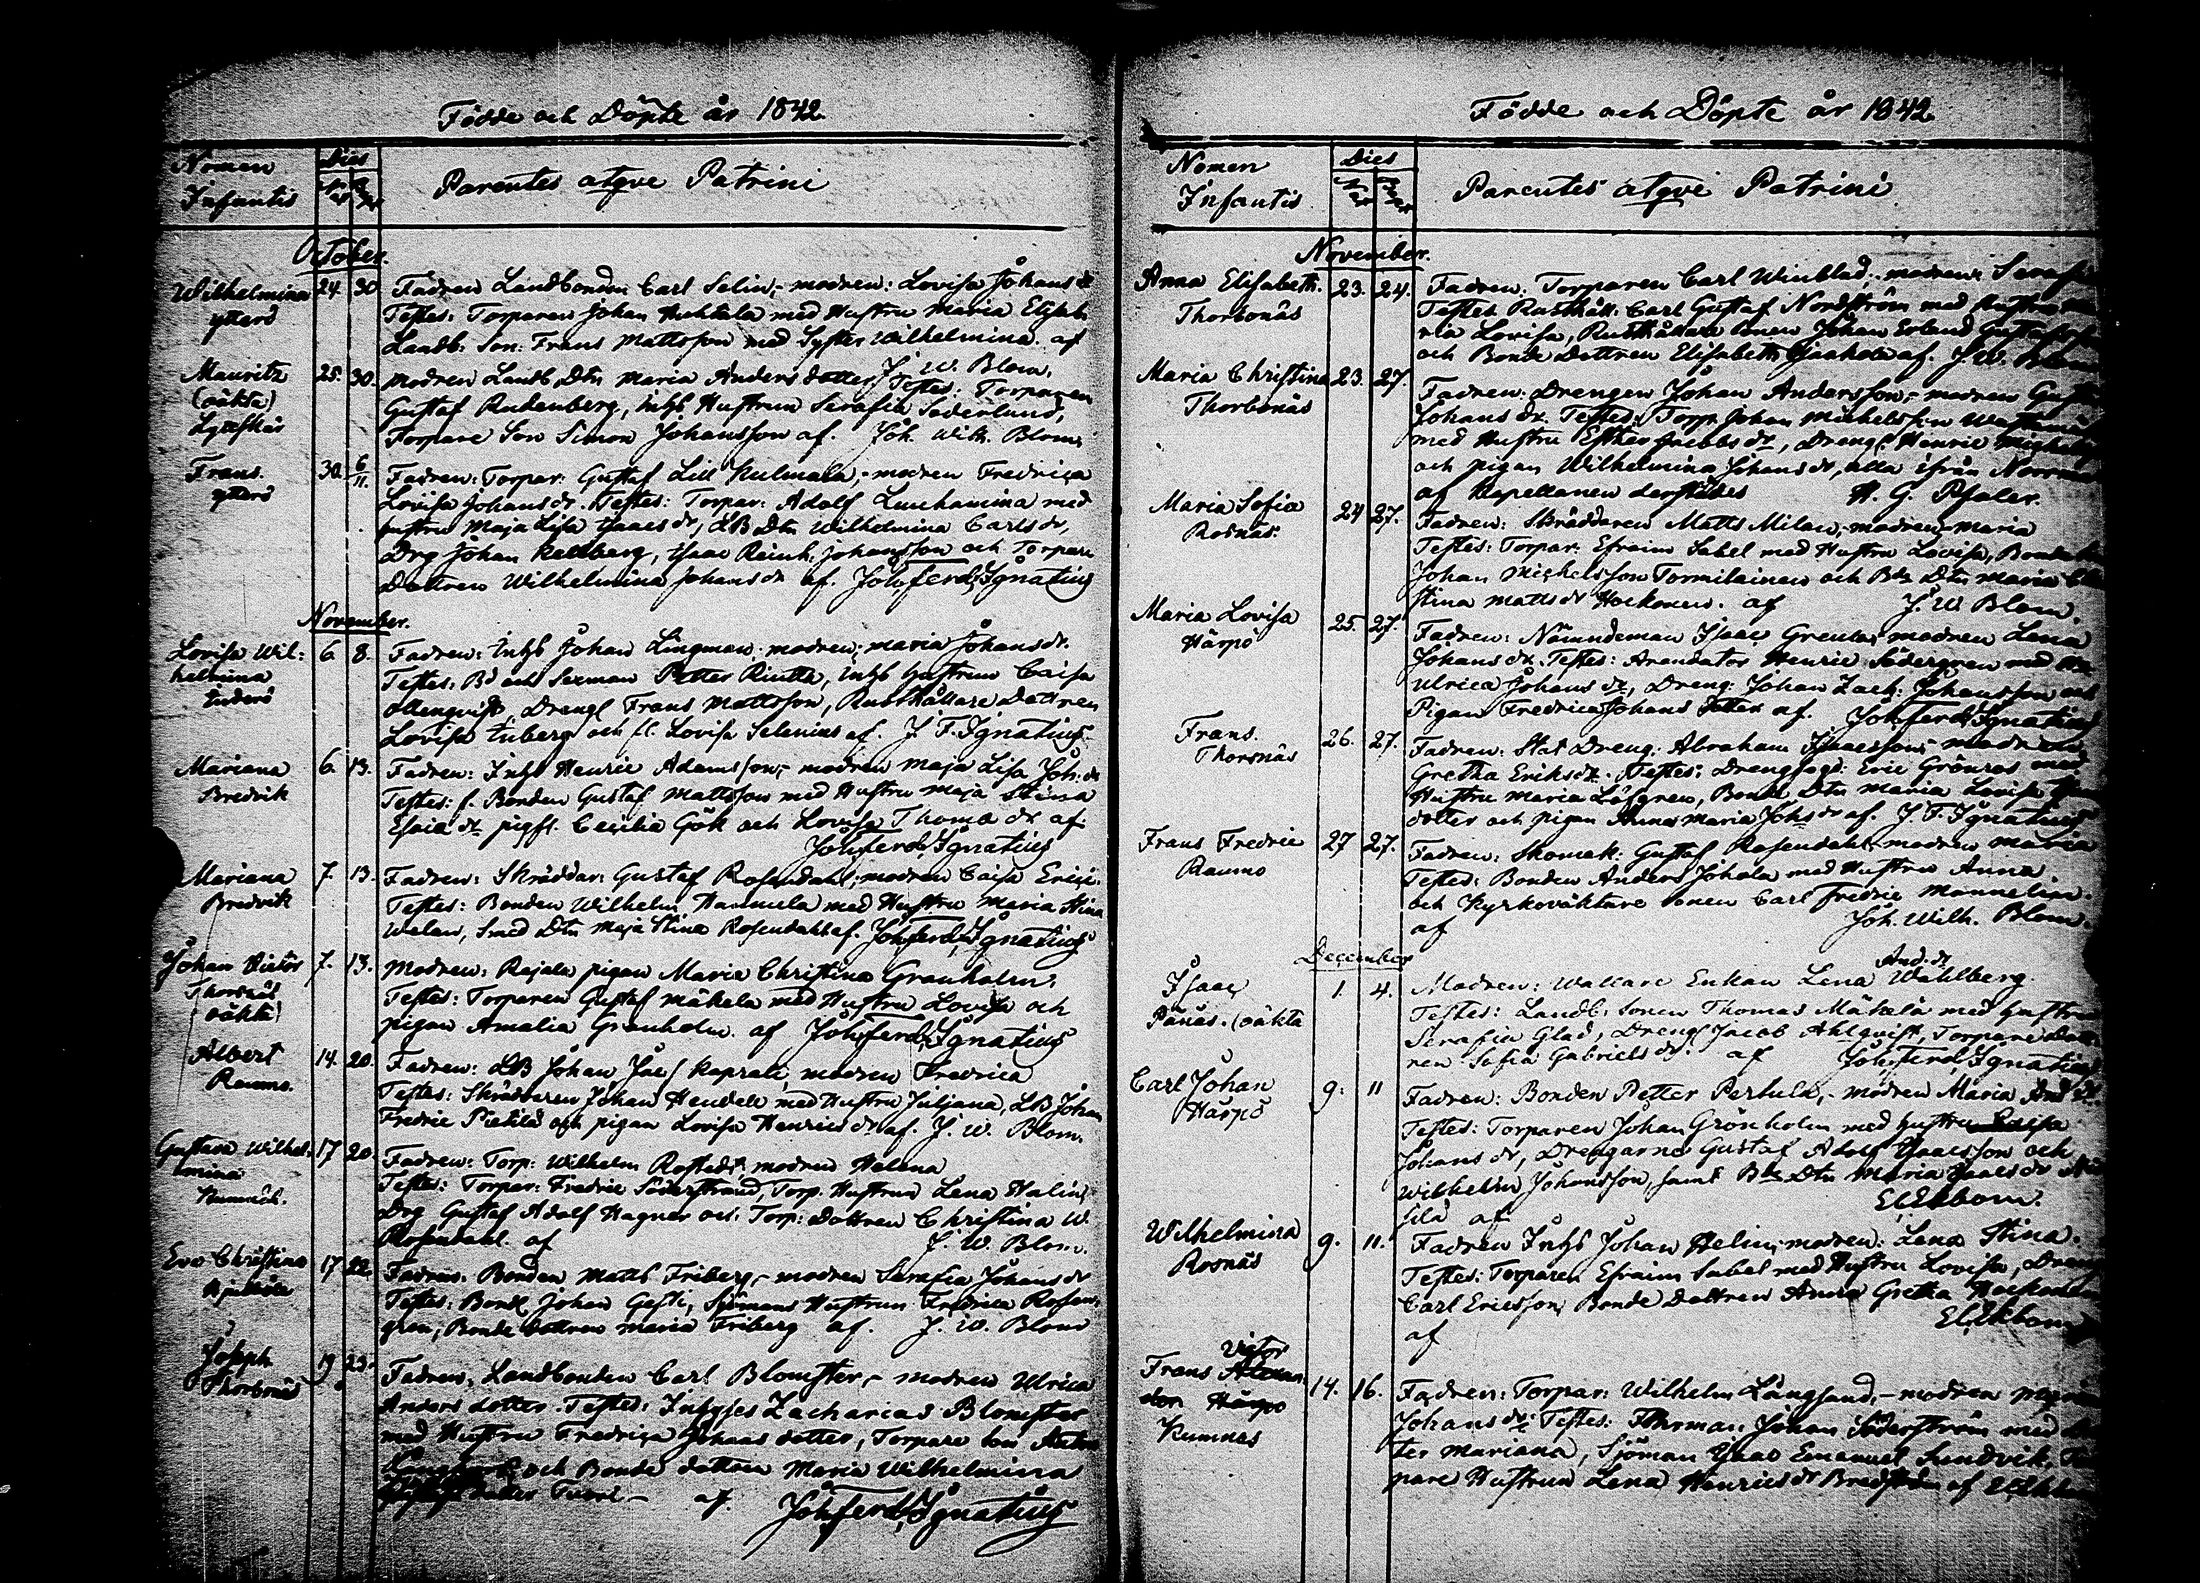 Födde och Döpte år 1842.
Nomen Infantis
Dies
Parentes atqve Patrini
October.
Wilhelmina 24. 30 Fadren Landbonden Carl Selin,- modren: Lovisa Johans dr
ytterö Testes: Torparen Johan Huhtala med Hustru Maria Elisab.
Landb: Son: Frans Mattsson med Syster Wilhelmina. af
J. W. Blom.
Mauritz 25. 30. Modren Landb. Dtn Maria Anders dotter, Testes: Torparen
(oäkta) Gustaf Rudenberg, Inhs Hustrun Serafia Söderlund,
Torpare Son Simon Johansson af. Joh. Wilh. Blom.
Frans. 30. 6/11. Fadren: Torpar: Gustaf Lill Kulmala,- modren Fredrica
ytterö Lovisa Johans dr. Testes: Torpar: Adolf med
Hustru Maja Lisa Isaacs dr, LB Dtn Wilhelmina Carls dr,
Drg Johan Kellberg, Isaac Reinh: Johansson och Torpare
Dottren Wilhelmina Johans dr af. Joh. Ferd. Ignatius
November.
Lovisa Wil: 6. 8. Fadren: Inhs Johan Lingman, modren; Maria Johans dr.
helmina Testes: Bd och Sexman Petter Rintla, Inhs Hustrun Caisa
Ollenqvist, Drengl Frans Mattsson, Rusthållare Dottren
Lovisa Enberg och fl. Lovisa Selenius af. J. F. Ignatius.
Mariana 6. 13. Fadren: Inhs Henric Adamsson,- modren Maja Lisa Joh: dr
Bredvik Testes: f. Bonden Gustaf Mattsson med Hustru Maja Stina
Esaia dr pigfl. Cecilia Gök och Lovisa Thomæ dr af.
Joh. Ferd. Ignatius
Mariana 7. 13. Fadren: Skräddar: Gustaf Rosendahl, modren Caisa Erics:
Bredvik Testes: Bonden Wilhelm Hannula med Hustru Maria Stina
Smed Dtn Maja Stina Rosendahl af. Joh. Ferd. Ignatius
Johan Victor 7. 13. Modren: Rajala pigan Maria Christina Granholm,
Thorsnäs Testes: Torparen Gustaf Mäkelä med Hustru Lovisa och
oäkta) pigan Amalia Granholm. af Joh. Ferd. Ignatius
Albert 14. 20. Fadren: LB Johan Jac: Kaprali, modren Fredrica
Raumo. Testes: Skräddaren Johan Hendell med Hustru Juliana, LB Johan
Fredric Pietilä och pigan Lovisa Henrics dr af. J. W. Blom.
Gustava Wilhel: 17 20. Fadren: Torp: Wilhelm Rostedt, modren Helena
mina Testes: Torpar: Fredric Söderstrand, Torp. Hustrun Lena Halin,
Kumnäs. Drg Gustaf Adolf Hagner och Torp: Dottren Christina W.
Rosendahl. af J. W. Blom.
Eva Christina 17 22. Fadren: Bonden Matts Friberg,- modren Serafia Johans dr
Testes: Bond. Johan Gesti, Sjömans Hustrun Fredrica Rosen,
gren, Bonde dottren Maria Friberg af. J. W. Blom
Joseph 19. 23. Fadren: Landbonden Carl Blomster,- modren Ulrica
Thorsnäs Anders dotter. Testes: Inhyses Zacharias Blomster
med Hustru Fredrica Johans dotter, Torpare son
och Bonde dottren Maria Wilhelmina
af. Joh. Ferd. Ignatius
Födde och Döpte år 1842.
Nomen Infantis
Dies
Parentes atqve Patrini
November.
Anna Elisabeth. 23. 24. Fadren: Torparen Carl Winblad,- modren:
Thorsnäs Testes Rusthåll: Carl Gustaf Nordström med Hustru
ria Lovisa, Rusthållare sonen Johan Erland Gustafsson
och Bonde Dottren Elisabeth Jaakola af. J. W. Blom
Maria Christina 23. 27. Fadren: Drengen Johan Andersson,- modren
Thorsnäs Johans dr. Testes: Torp Johan Michelsson
med Hustru Esther Jacobs dr, Drengl Henric
och pigan Wilhelmina Johans dr, alla ifrån Norrmark
af Kapellanen derstädes H. G. Psaler.
Maria Sofia 24 27. Fadren: Skräddaren Matts Milan,- modren Maria
Rosnäs. Testes: Torpar: Efraim Sabel med Hustru Lovisa,
Johan Michelsson Tormilainen och Bde Dtn Maria
stina Matts dr Hockonen. af J. W. Blom.
Maria Lovisa 25. 27. Fadren: Nämndeman Isaac Grenlas, modren Lena
Härpö Johans dr. Testes: Arendator Henric Södergren med
Ulrica Johans dr, Dreng: Johan Zach: Johansson och
Pigan Fredrica Johans dotter af. Joh. Ferd. Ignatius
Frans. 26. 27. Fadren: Stat Dreng: Abraham Isaacsson,-
Thorsnäs Gretha Eriks dr. Testes: Drengfogd: Eric Grönroos med
Hustru Maria Löfgren, Bonde Dtn Maria Lovisa
dotter och pigan Anna Maria Johs dr af. J. F. Ignatius
Frans Fredric 27 27. Fadren: Skomak: Gustaf Rosendahl, modren Maria
Raumo Testes: Bonden Anders Johola med Hustru Anna.
och Kyrkoväktare sonen Carl Fredric Mannelin.
af Joh. Wilh. Blom.
December
Isaac 1. 4. Modren: Wallare Enkan Lena And: dr Wahlberg.
Pänäs. (oäkta Testes: Landb: sonen Thomas Mäkelä med Hustru
Serafia Glad, Drengl Jacob Ahlqvist, Torpare
ren Sofia Gabriels dr. af Joh. Ferd. Ignatius
Carl Johan 9. 11 Fadren: Bonden Petter Perhula,- modren Maria And: dr.
Härpö Testes: Torparen Johan Grönholm med Hustru Caisa
Johans dr, Drengarne Gustaf Adolf Isaacsson och
Wilhelm Johansson, samt Bde Dtn Maria Isaacs dr
af E. Ekbom.
Wilhelmina 9. 11. Fadren Inhs Johan Helin; modren: Lena Stina.
Rosnäs Testes: Torparen Efraim Sabel med Hustru Lovisa,
Carl Ericsson, Bonde Dottren Anna Gretha Hockonen
af E. Ekbom
Frans Victor 14. 16. Fadren: Torpar: Wilhelm Långsand,- modren
Härpö Johans dr. Testes: Förman: Johan Söderström med
Kumnäs ter Mariana, Sjöman Isaac Emanuel Sundvik,
pare Hustrun Lena Henrics dr Bredström af